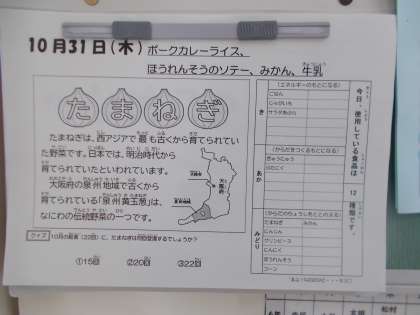 10月31日(木) ポークカレーライス、
ほうれんそうのソテー、みかん、牛乳
たまねぎ
たまねぎは、西アジアで最も古くから育てられてい
た野菜です。日本では、明治時代から
育てられていたといわれています。
大阪府の泉州地域で古くから
育てられている「泉州黄玉葱」は、
なにわの伝統野菜の一つです。
大阪府
クイズ 10月の給食(22回)に、たまねぎは何回登場するでしょうか?
①15回 ②20回 ③22回
今日、使用している食品は 12 種類です。
き
(エネルギーのもとになる)
ごはん
じゃがいも
サラダあぶら
あか
(からだをつくるもとになる)
ぎゅうにゅう
ぶたにく
みどり
(からだのちょうしをととのえる)
たまねぎ みかん
にんじん
グリンピース
にんにく
ほうれんそう
コーン